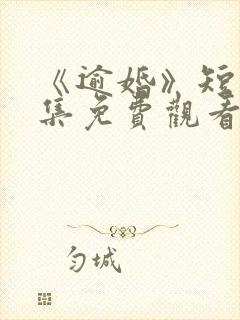 《逾婚》短
集免費觀看
匀城